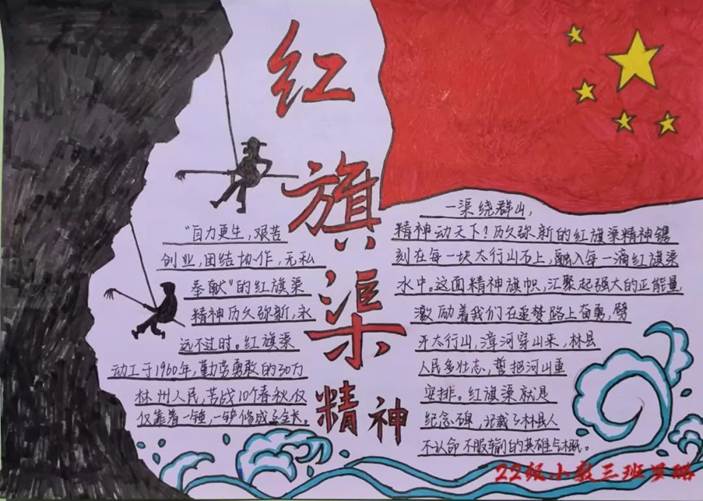 红旗渠
精神
"自力更生，艰苦
创业，团结协作，无私
奉献"的红旗渠
精神历久弥新，永
远不过时。红旗渠
动工于1960年，勤劳勇敢的30万
林州人民，苦战10个春秋，仅
仅靠着一锤，一铲
一渠绕群山，
精神动天下！历久弥新的红旗渠精神镌
刻在每一块太行山石上，融入每一滴红旗渠
水中。这面精神旗帜，汇聚起强大的正能量
激励着我们在逐梦路上奋勇，劈
开太行山，漳河穿山来，林县
人民多壮志，誓把河山重
安排。红旗渠就是
纪念碑，记载了林县人
不认命不服输的英雄气概。
22级小教三班